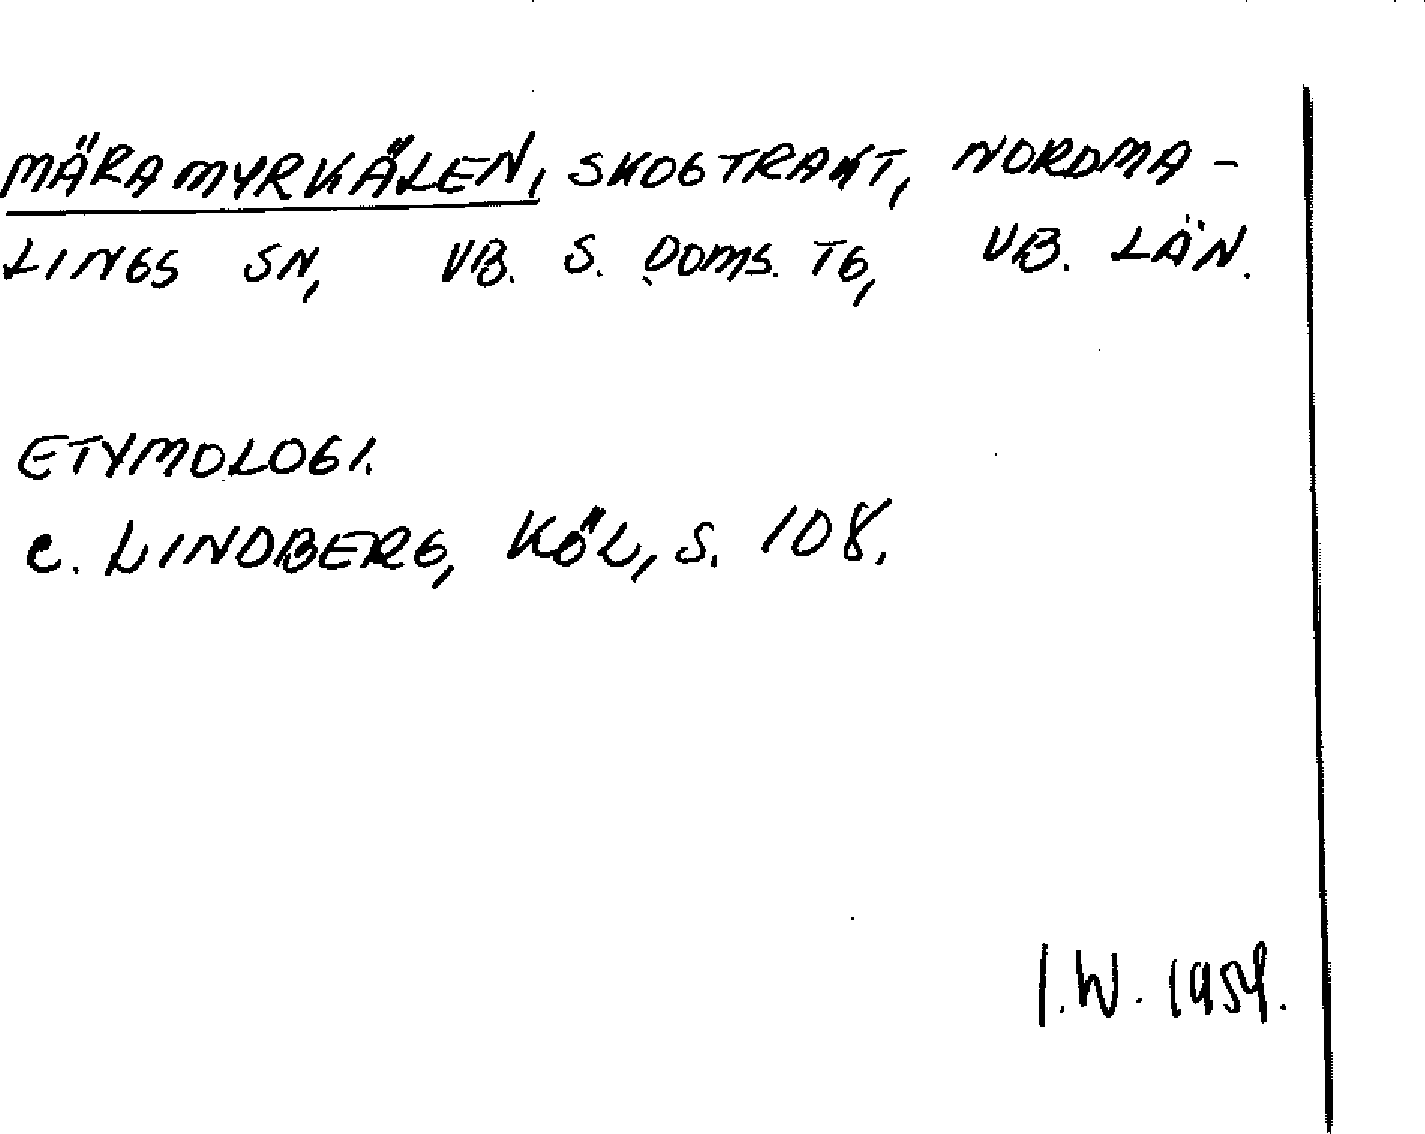 MÄRAMYRKÄLEN, SKOGTRAKT, NORDMA-
LINGS SN, VB. S. DOMS. TG, VB. LÄN.
ETYMOLOGI.
C. LINDBERG, KÖL, S. 108.
I.W. 1954.